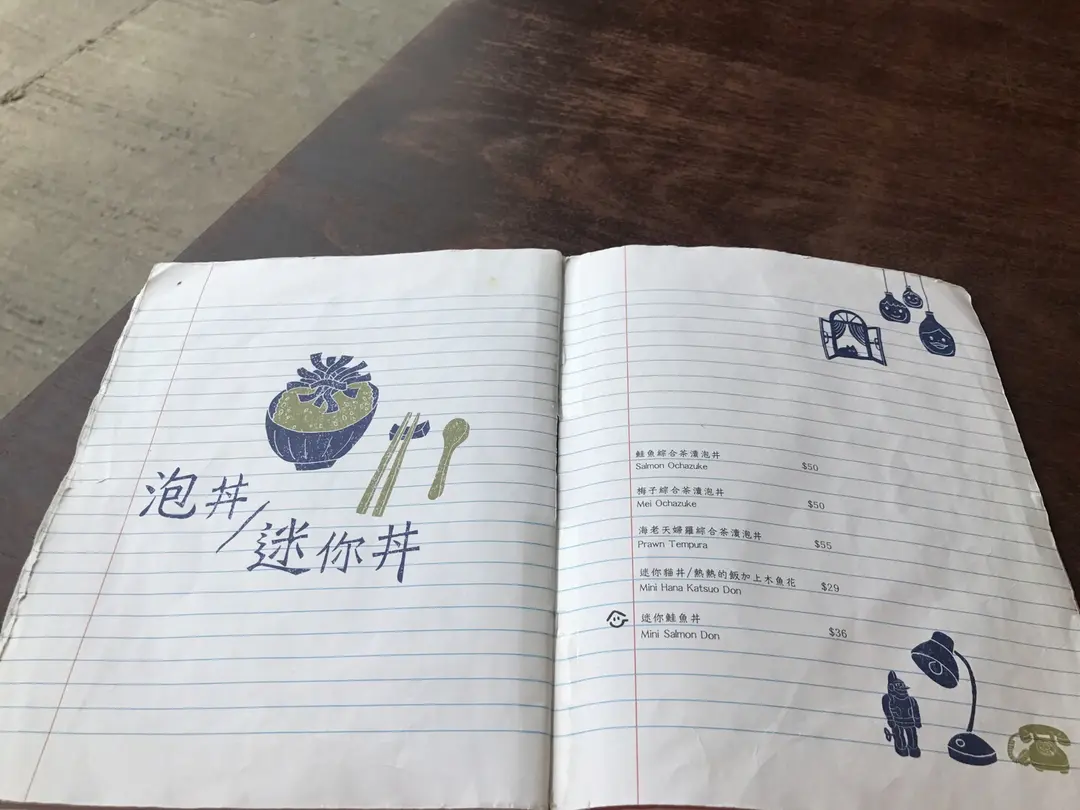 泡丼/
迷你丼
鮭魚綜合茶漬泡丼
Salmon Ochazuke $50
梅子綜合茶漬泡丼
Mei Ochazuke $50
海老天婦羅綜合茶漬泡丼
Prawn Tempura $55
迷你貓丼/熱熱的飯加上木魚花
Mini Hana Katsuo Don $29
迷你鮭魚丼
Mini Salmon Don $36